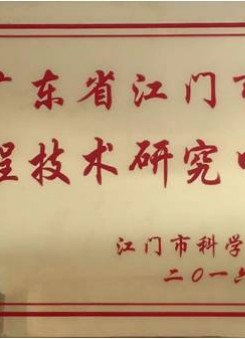 广东省江门
程技术研究
江门市科学
二〇一六